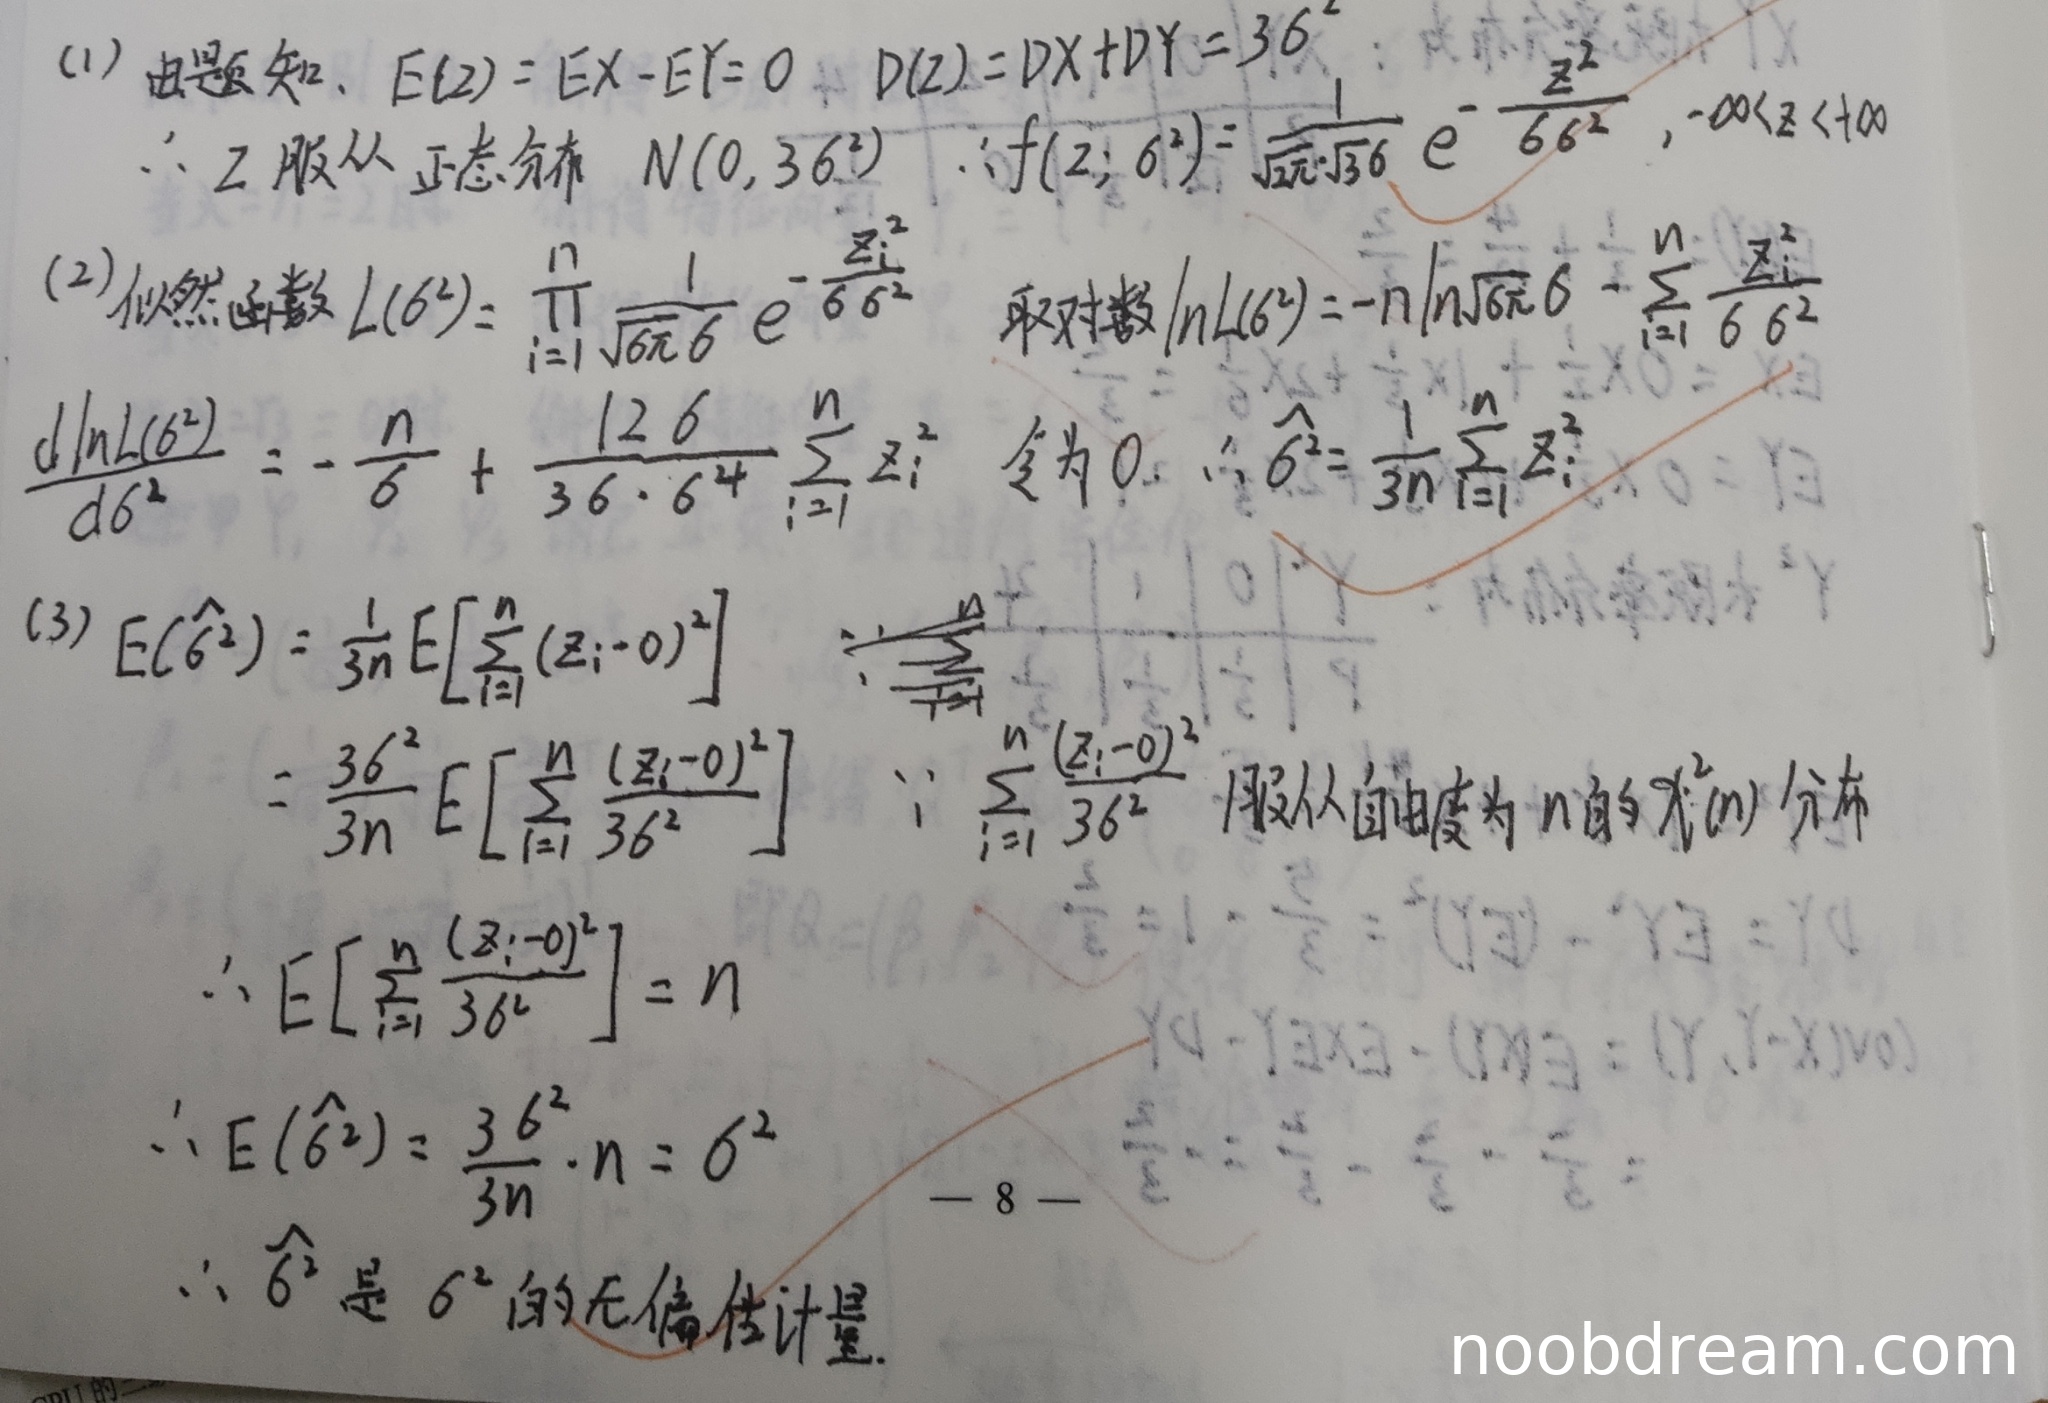 (1) 由题知. E(Z) = EX - EY = 0 D(Z) = DX + DY = 3σ²
∴ Z 服从 正态分布 N(0, 3σ²) ∴ f(z; σ²) = \frac{1}{\sqrt{2π}·\sqrt{3}σ} e^{-\frac{z²}{6σ²}}, -∞<z<+∞
(2) 似然函数 L(σ²) = \prod_{i=1}^{n} \frac{1}{\sqrt{6π}σ} e^{-\frac{z_i²}{6σ²}} 取对数 lnL(σ²) = -n ln\sqrt{6π}σ - \sum_{i=1}^{n} \frac{z_i²}{6σ²}
\frac{d lnL(σ²)}{dσ²} = -\frac{n}{σ} + \frac{12σ}{36·σ^{4}} \sum_{i=1}^{n} z_i² 令为0. ∴ \hat{σ²} = \frac{1}{3n} \sum_{i=1}^{n} z_i²
(3) E(\hat{σ²}) = \frac{1}{3n} E[\sum_{i=1}^{n} (z_i-0)²]
= \frac{3σ²}{3n} E[\sum_{i=1}^{n} \frac{(z_i-0)²}{3σ²}] ∵ \sum_{i=1}^{n} \frac{(z_i-0)²}{3σ²} 服从自由度为 n 的 χ²(n) 分布
∴ E[\sum_{i=1}^{n} \frac{(z_i-0)²}{3σ²}] = n
∴ E(\hat{σ²}) = \frac{3σ²}{3n} · n = σ²
— 8 —
∴ \hat{σ²} 是 σ² 的无偏估计量.
noobdream.com